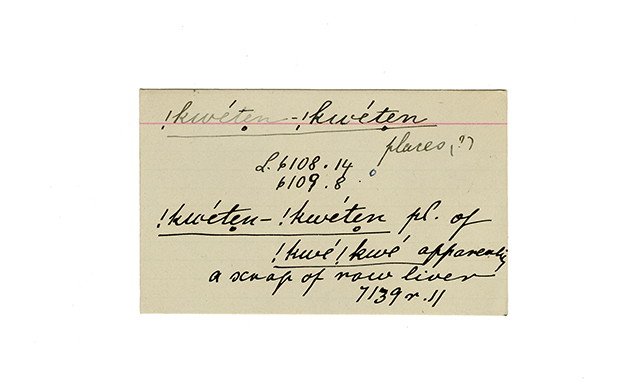 !kwéten -!kwéten
places, (?)
L. 6108. 14
6109. 8.
!kwéten- !kwéten pl. of
!kwé!kwé apparently
a scrap of raw liver
7139 r. 11